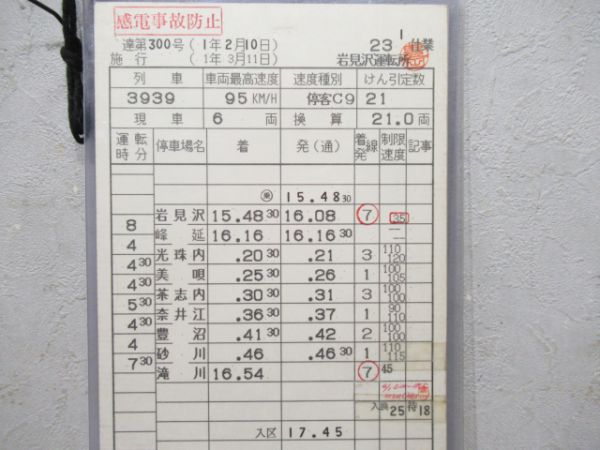 感電事故防止
達第300号 (1年2月10日) 23 1 仕業
施行 (1年3月11日) 岩見沢運転所
列車 車両最高速度 速度種別 けん引定数
3939 95 KM/H 停客C9 21
現車 6 両 換算 21.0 両
運転時分 停車場名 着 発(通) 着発線 制限速度 記事
乗 15.48 30
岩見沢 15.48 30 16.08 7 35
8
峰延 16.16 16.16 30 — —
4
光珠内 .20 30 .21 3 110 120
4 30
美唄 .25 30 .26 1 100 105
4 30
茶志内 .30 30 .31 3 100 100
5 30
奈井江 .36 30 .37 1 90 110
4 30
豊沼 .41 30 .42 2 100 100
4
砂川 .46 .46 30 1 110 115
7 30
滝川 16.54 7 45
入換 25 待 18
入区 17.45